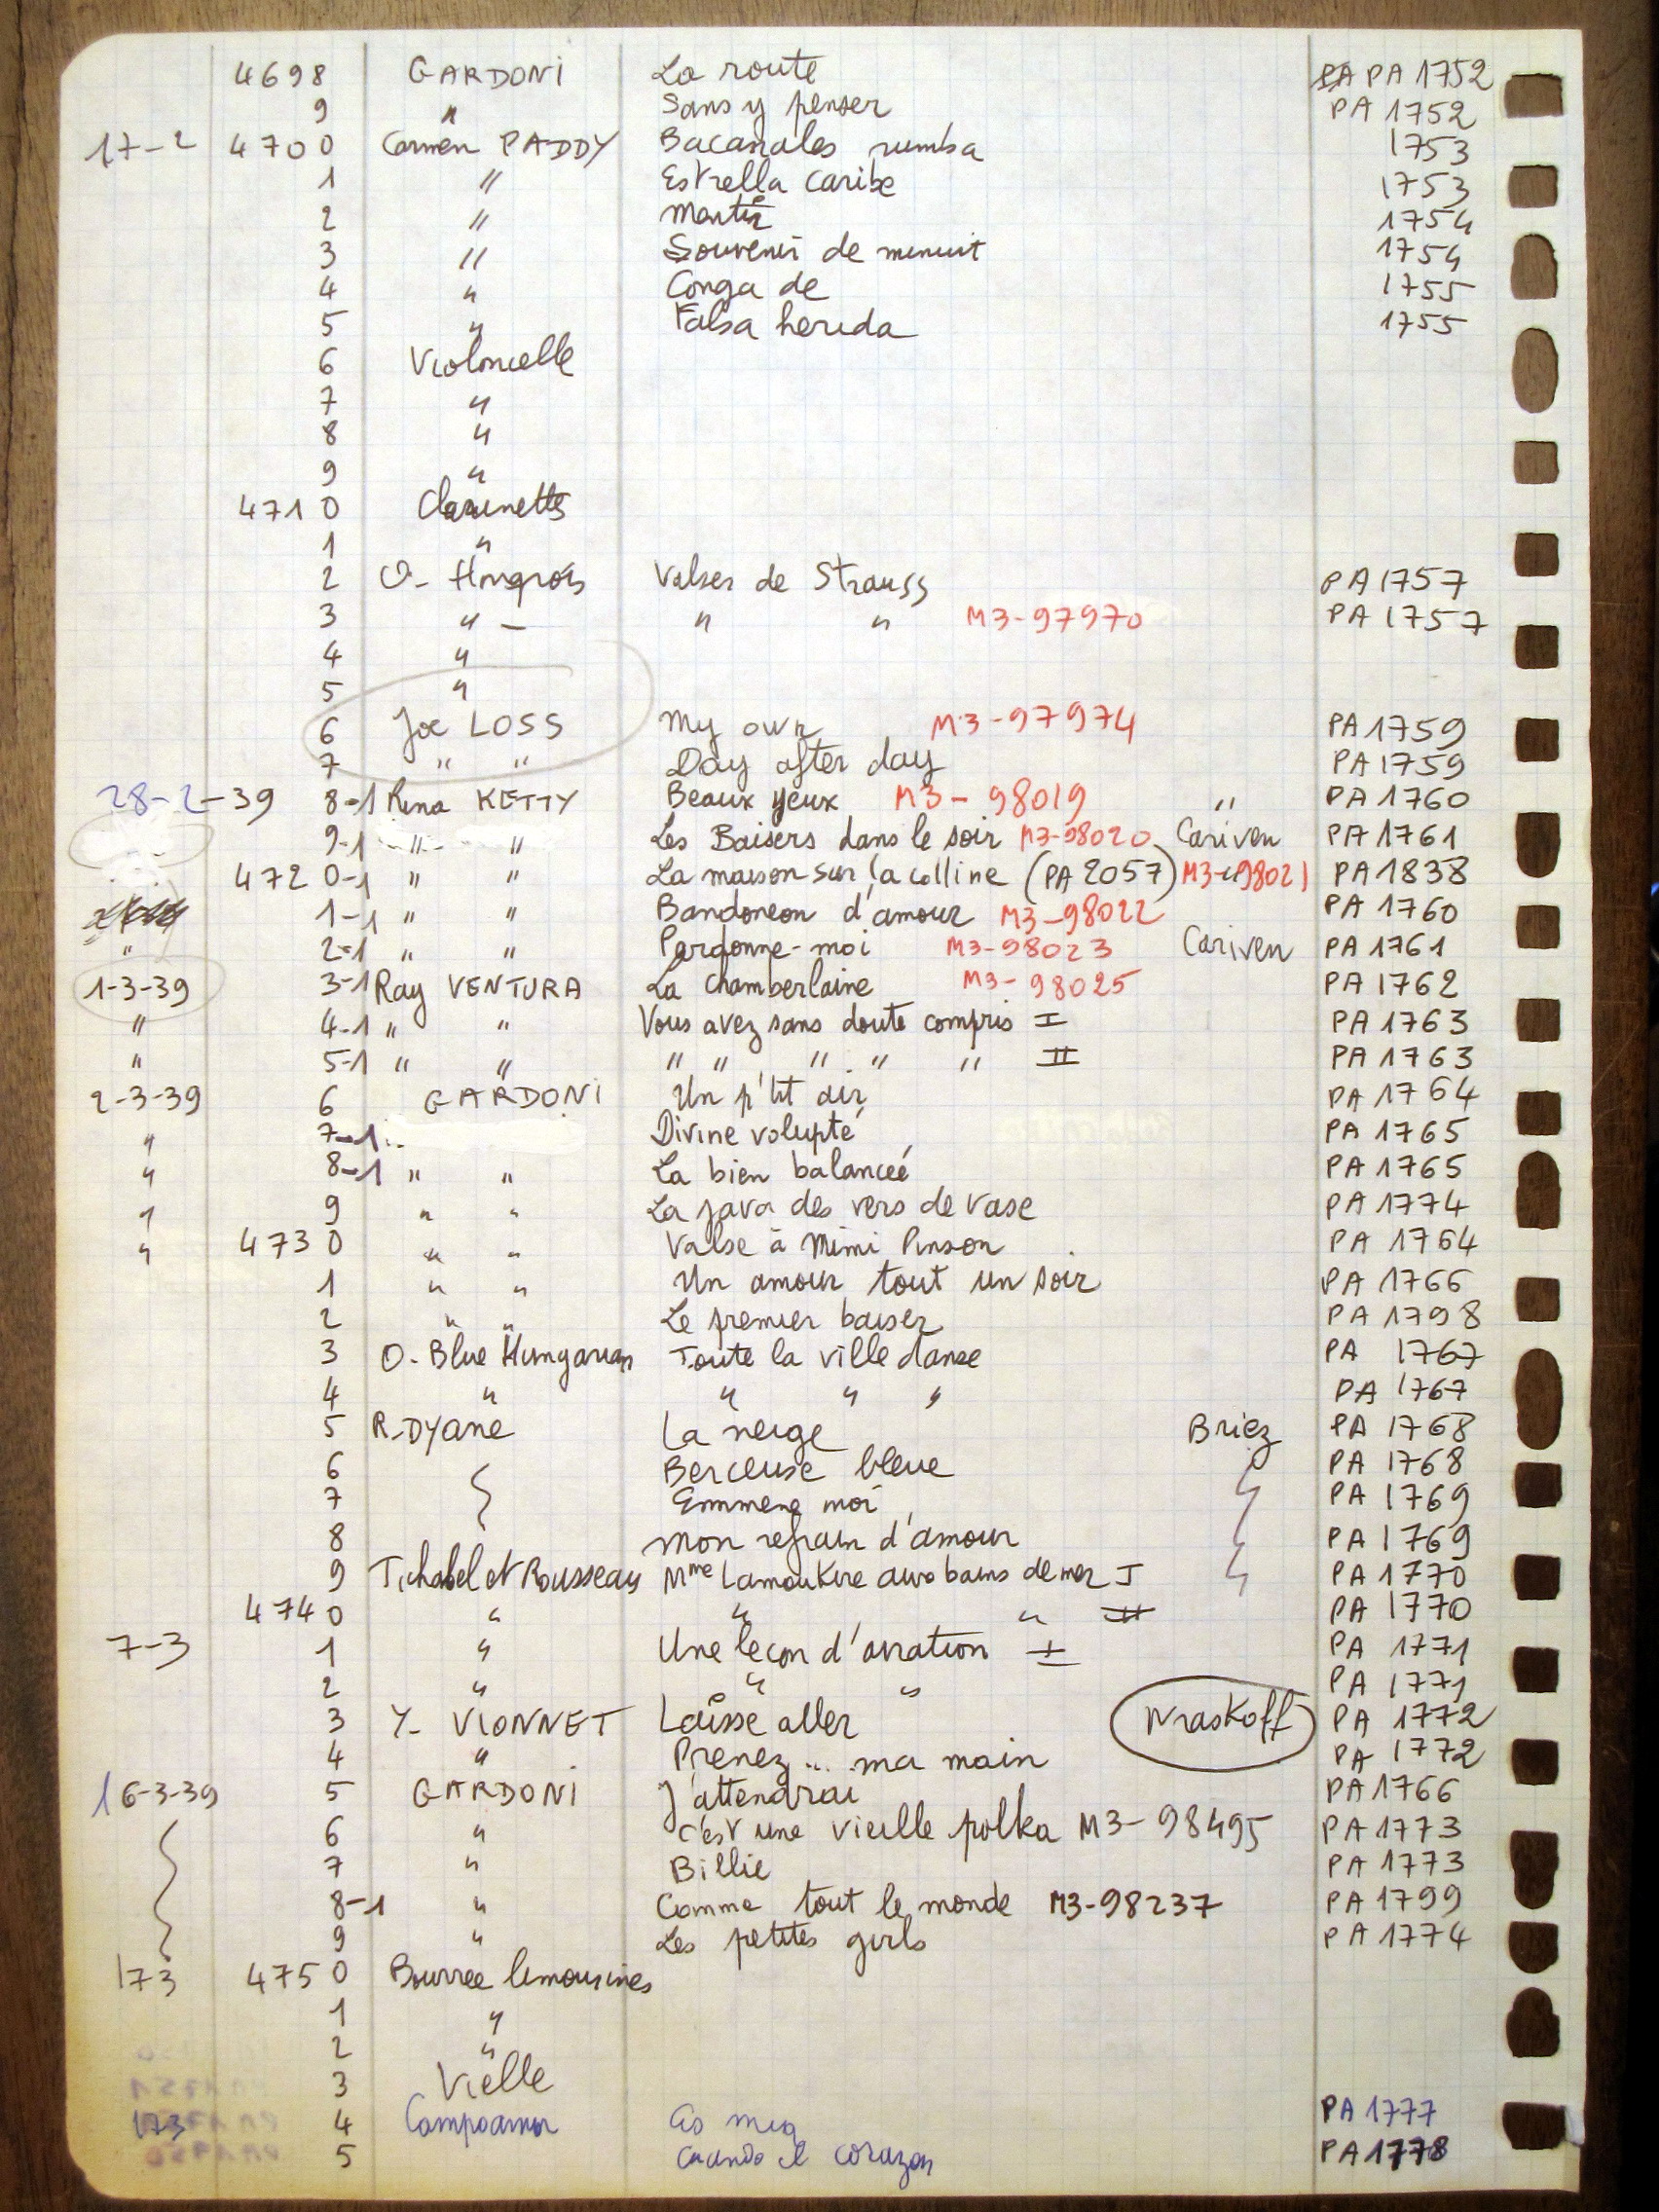 4698 GARDONI La route PA PA 1752
9 " Sans y penser PA 1752
17-2 4700 Carmen PADDY Bacanales rumba 1753
1 " Estrella caribe 1753
2 " 1754
3 " Souvenir de minuit 1754
4 " Conga de 1755
5 " Falsa herida 1755
6 Violoncelle
7 "
8 "
9 "
4710 Clarinette
1 "
2 O- Hongrois Valses de Strauss PA 1757
3 " - " " M3-97970 PA 1757
4 "
5 "
6 Joe LOSS My own M3-97974 PA 1759
7 " " Day after day PA 1759
28-2-39 8-1 Rina KETTY Beaux yeux M3-98019 " PA 1760
9-1 " " Les Baisers dans le soir M3-98020 Cariven PA 1761
4720-1 " " La maison sur la colline (PA 2057) M3-98021 PA 1838
1-1 " " Bandoneon d'amour M3-98022 PA 1760
" 2-1 " " Pardonne-moi M3-98023 Cariven PA 1761
1-3-39 3-1 Ray VENTURA La Chamberlaine M3-98025 PA 1762
" 4-1 " " Vous avez sans doute compris I PA 1763
" 5-1 " " " " " " " II PA 1763
2-3-39 6 GARDONI Un p'tit air PA 1764
" 7-1 Divine volupté PA 1765
" 8-1 " " La bien balanceé PA 1765
" 9 " " La java des vers de vase PA 1774
" 4730 " " Valse à Mimi Pinson PA 1764
1 " " Un amour tout un soir PA 1766
2 " " Le premier baiser PA 1798
3 O. Blue Hungarian Toute la ville danse PA 1767
4 " " " " PA 1767
5 R-DYane La neige Briez PA 1768
6 Berceuse bleue PA 1768
7 Emmene moi PA 1769
8 Mon refrain d'amour PA 1769
9 Tichabel et Rousseau Mme Lamoukire aux bains de mer I PA 1770
4740 " " " II PA 1770
7-3 1 " Une leçon d'aviation I PA 1771
2 " " " PA 1771
3 Y. VIONNET Laisse aller Wraskoff PA 1772
4 " Prenez... ma main PA 1772
16-3-39 5 GARDONI J'attendrai PA 1766
6 " C'est une vieille polka M3-98495 PA 1773
7 " Billie PA 1773
8-1 " Comme tout le monde M3-98237 PA 1799
9 " Les petites girls PA 1774
173 4750 Bourree limousines
1 "
2 "
3 Vielle
173 4 Campoamor Es mia PA 1777
5 Cuando el corazon PA 1778